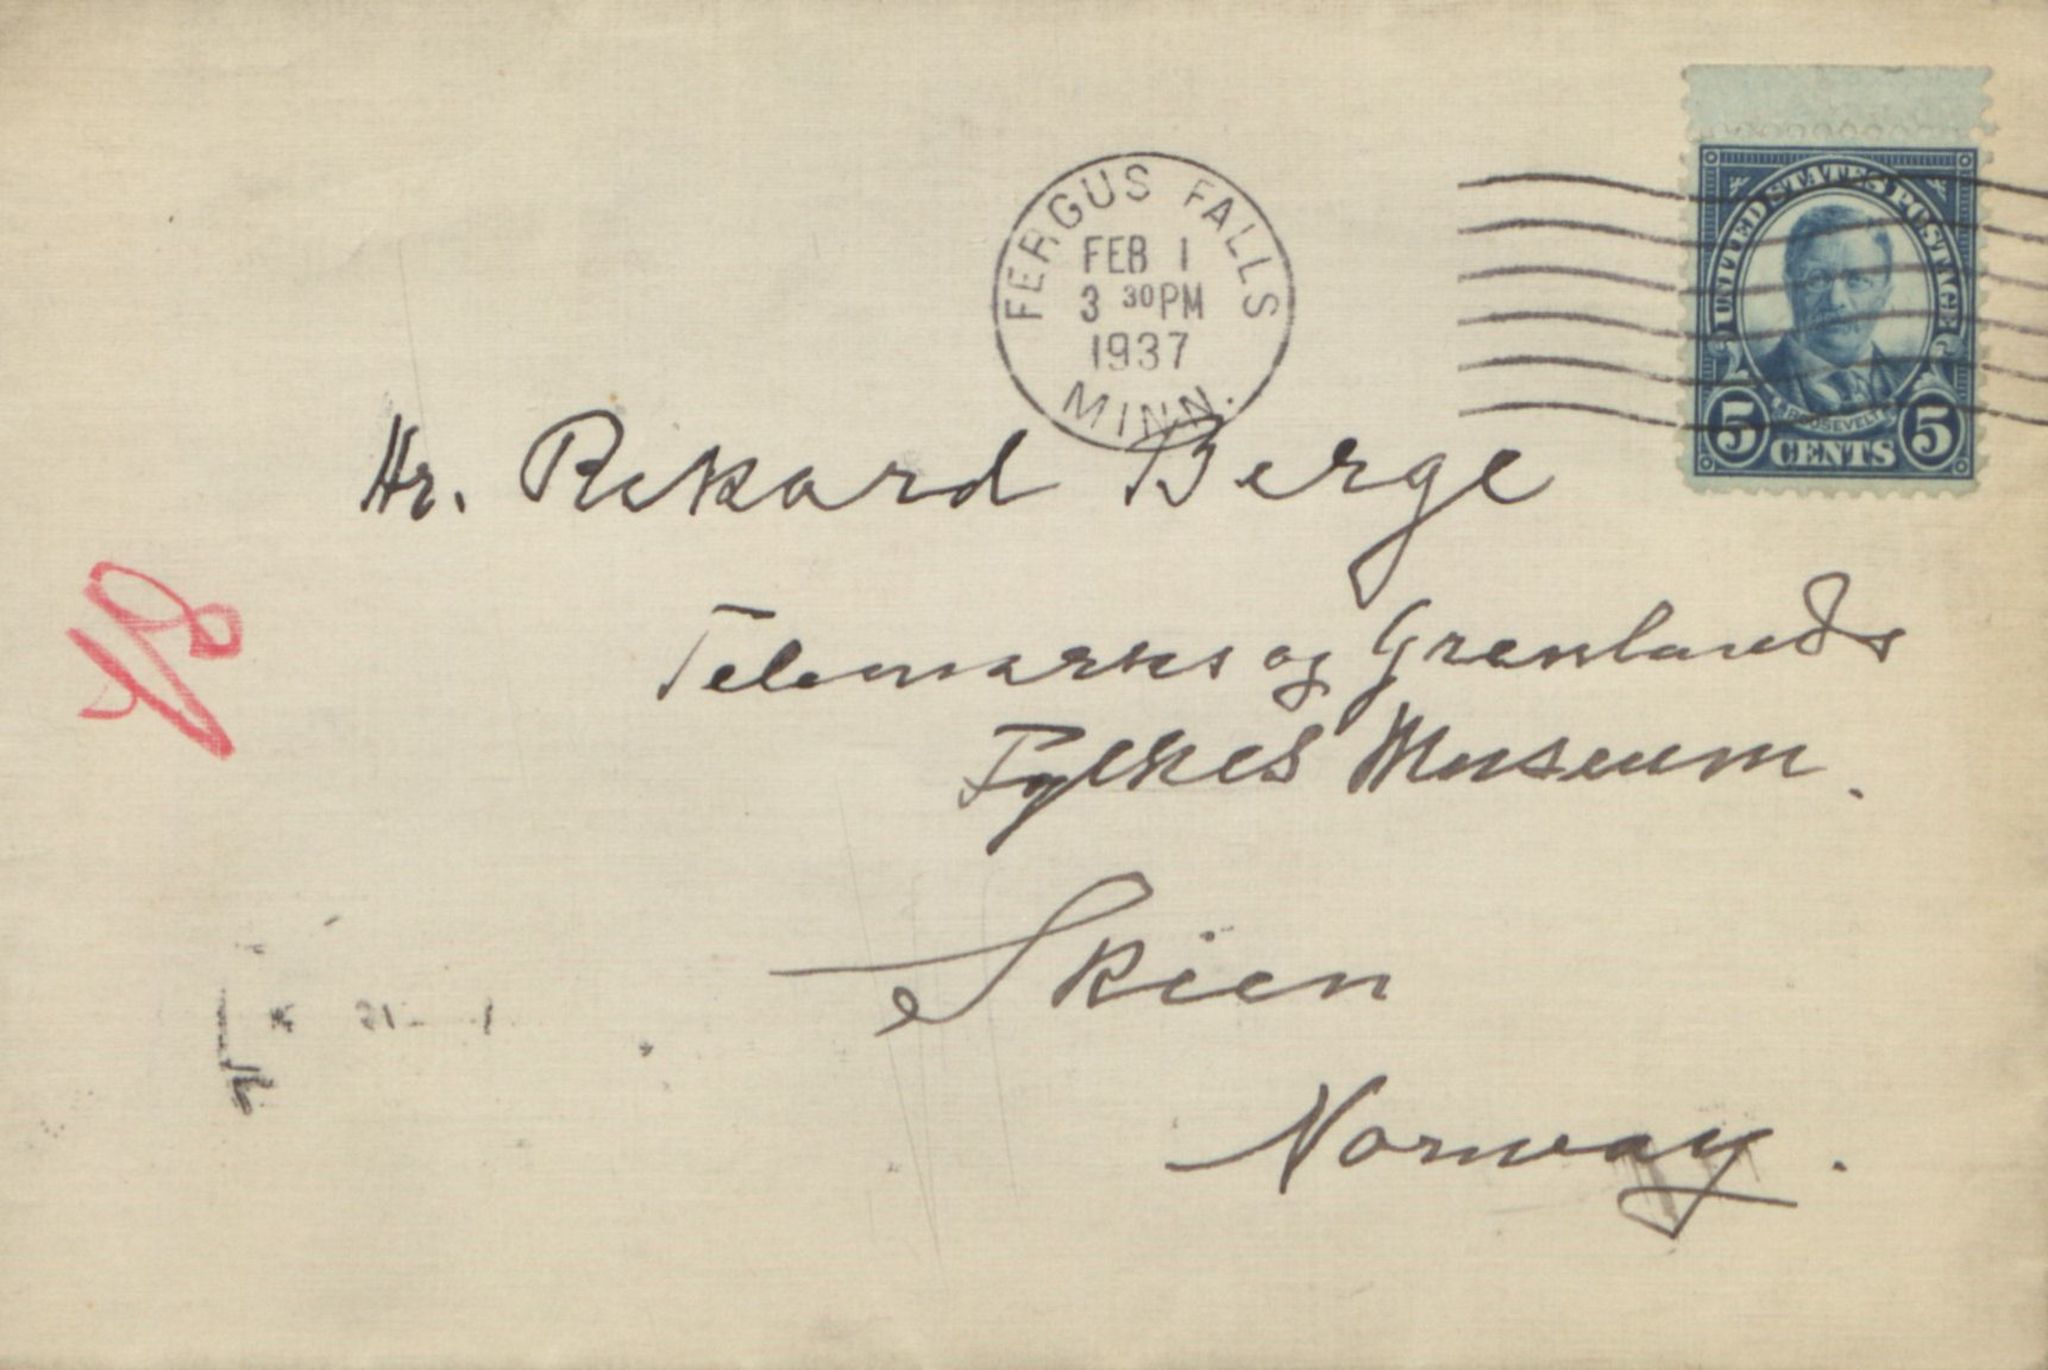 FERGUS FALLS
FEB 1
3 30 PM
1937
MINN.
UNITED STATES POSTAGE
ROOSEVELT
5 CENTS 5
Hr. Rikard Berge
Telemarks og Grenlands
Fylkes Museum.
Skien
Norway.